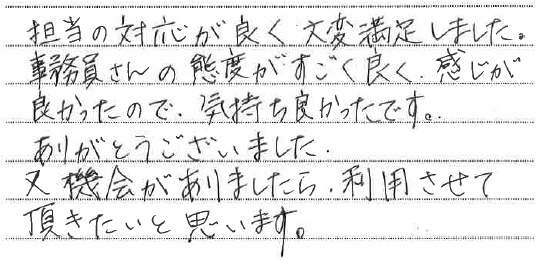 担当の対応が良く大変満足しました。
事務員さんの態度がすごく良く、感じが
良かったので、気持ち良かったです。
ありがとうございました。
又機会がありましたら、利用させて
頂きたいと思います。